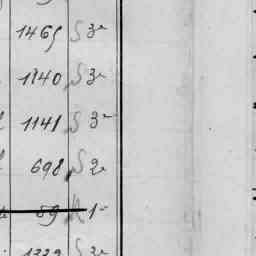 1465 S 3
1140 S 3
1141 S 3
698 S 2
59 R 1
1339 S 3